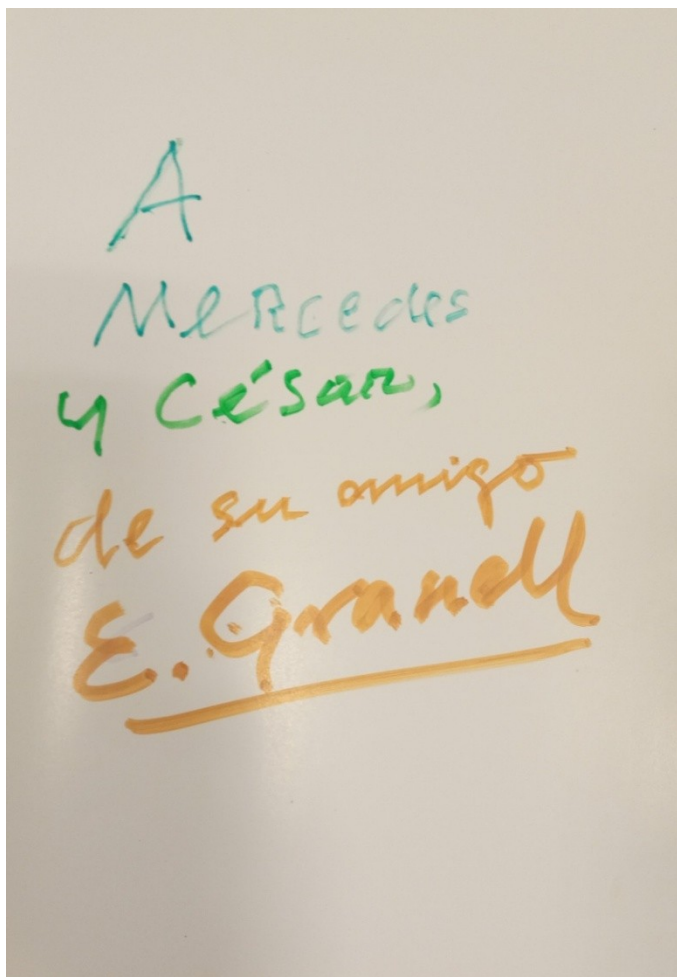 A
Mercedes
y César,
de su amigo
E. Granell